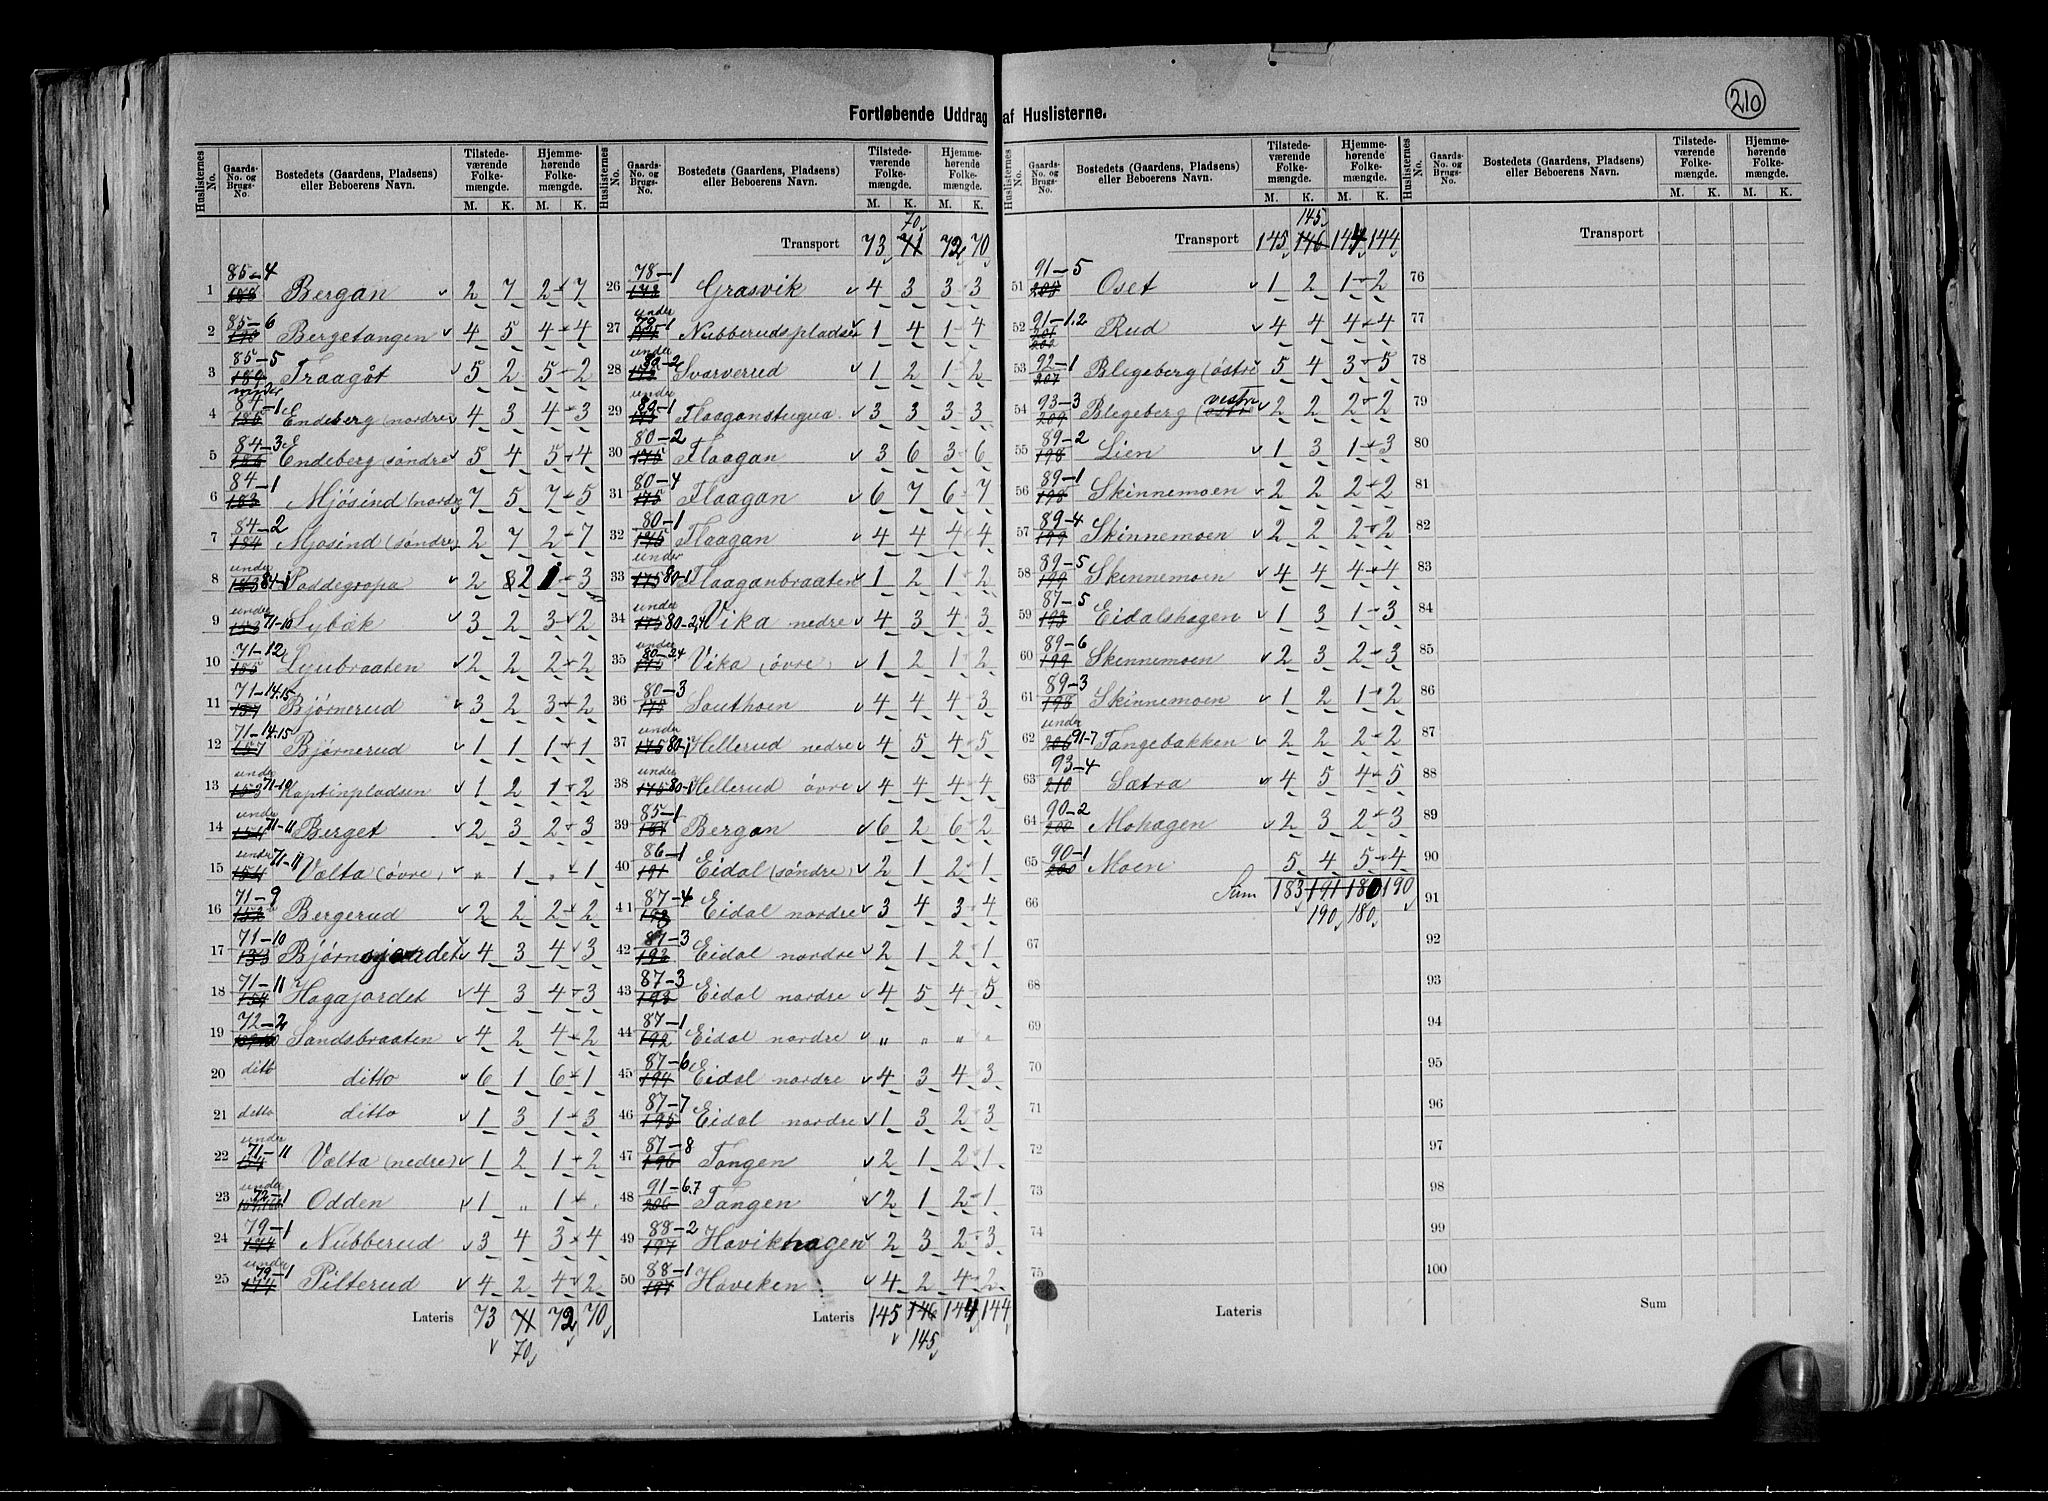 210
Fortløbende Uddrag af Huslisterne.
Huslisternes No. Gaards-No. og Brugs-No. Bostedets (Gaardens, Pladsens) eller Beboerens Navn. Tilstedeværende Folkemængde. M. K. Hjemmehørende Folkemængde. M. K.
1 85-4 Bergan 2 7 2 7
2 85-6 Bergetangen 4 5 4 4
3 85-5 Traagöt 5 2 5 2
4 84-1 Endeberg (nordre 4 3 4 3
5 84-3 Endeberg (söndre 5 4 5 4
6 84-1 Mjösind (nordre 7 5 7 5
7 84-2 Mjösind (söndre 2 7 2 7
8 under 84-1 Poddegropa 2 2 1 3
9 under 71-10 Lybæk 3 2 3 2
10 71-12 Lyubraaten 2 2 2 2
11 71-14.15 Bjørnerud 3 2 3 2
12 71-14.15 Bjørnerud 1 1 1 1
13 under 71-10 Kaptinpladsen 1 2 1 2
14 under 71-11 Berget 2 3 2 3
15 under 71-11 Vælta (övre) " 1 " 1
16 71-9 Bergerud 2 2 2 2
17 71-10 Bjørnsjordet 4 3 4 3
18 71-11 Hagajordet 4 3 4 3
19 72-2 Sandsbraaten 4 2 4 2
20 ditto ditto 6 1 6 1
21 ditto ditto 1 3 1 3
22 under 71-11 Vælta (nedre) 1 2 1 2
23 under 72-1 Odden 1 " 1 "
24 79-1 Nubberud 3 4 3 4
25 under 79-1 Pilterud 4 2 4 2
Lateris 73 71 72 70
70
Transport 73 71 72 70
70
26 78-1 Grasvik 4 3 3 3
27 under 79-1 Nubberudspladsen 1 4 1 4
28 under 80-2 Svarverud 1 2 1 2
29 under 80-1 Flaaganstugua 3 3 3 3
30 80-2 Flaagan 3 6 3 6
31 80-4 Flaagan 6 7 6 7
32 80-1 Flaagan 4 4 4 4
33 under 80-1 Flaaganbraaten 1 2 1 2
34 under 80-2,4 Vika nedre 4 3 4 3
35 under 80-2.4 Vika (övre) 1 2 1 2
36 80-3 Southoen 4 4 4 3
37 under 80-1 Hellerud nedre 4 5 4 5
38 under 80-1 Hellerud övre 4 4 4 4
39 85-1 Bergan 6 2 6 2
40 86-1 Eidal (söndre) 2 1 2 1
41 87-4 Eidal nordre 3 4 3 4
42 87-3 Eidal nordre 2 1 2 1
43 87-3 Eidal nordre 4 5 4 5
44 87-1 Eidal nordre " " " "
45 87-6 Eidal nordre 4 3 4 3
46 87-7 Eidal nordre 1 3 2 3
47 87-8 Tangen 2 1 2 1
48 91-6.7 Tangen 2 1 2 1
49 88-2 Havikhagen 2 3 2 3
50 88-1 Haveken 4 2 4 2
Lateris 145 146 144 144
145
Transport 145 146 144 144
145
51 91-5 Oset 1 2 1 2
52 91-1.2 Rud 4 4 4 4
53 92-1 Blegeberg (östre 5 4 3 5
54 93-3 Blegeberg (vestre 2 2 2 2
55 89-2 Lien 1 3 1 3
56 89-1 Skinnemoen 2 2 2 2
57 89-4 Skinnemoen 2 2 2 2
58 89-5 Skinnemoen 4 4 4 4
59 87-5 Eidalshagen 1 3 1 3
60 89-6 Skinnemoen 2 3 2 3
61 89-3 Skinnemoen 1 2 1 2
62 under 91-7 Tangebakken 2 2 2 2
63 93-4 Sætra 4 5 4 5
64 90-2 Mohagen 2 3 2 3
65 90-1 Moen 5 4 5 4
66 Sum 183 191 180 190
190 180
67
68
69
70
71
72
73
74
75
Lateris
Transport
76
77
78
79
80
81
82
83
84
85
86
87
88
89
90
91
92
93
94
95
96
97
98
99
100
Sum